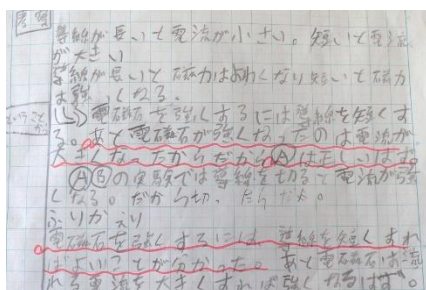 考察
導線が長いと電流が小さい。短いと電流
が大きい
導線が長いと磁力はよわくなり短いと磁力
は強くなる。
ということから
電磁石を強くするには導線を短くす
る。あと電磁石が強くなったのは電流が
大きくなったからだからⒶは正しいはず。
ⒶⒷの実験では導線を切ると電流が強
くなる。だから切
ふりかえり
電磁石を強くするには、導線を短くすれ
ばよいことが分かった。あと電磁石は流
れる電流を大きくすれば強くなるはず。